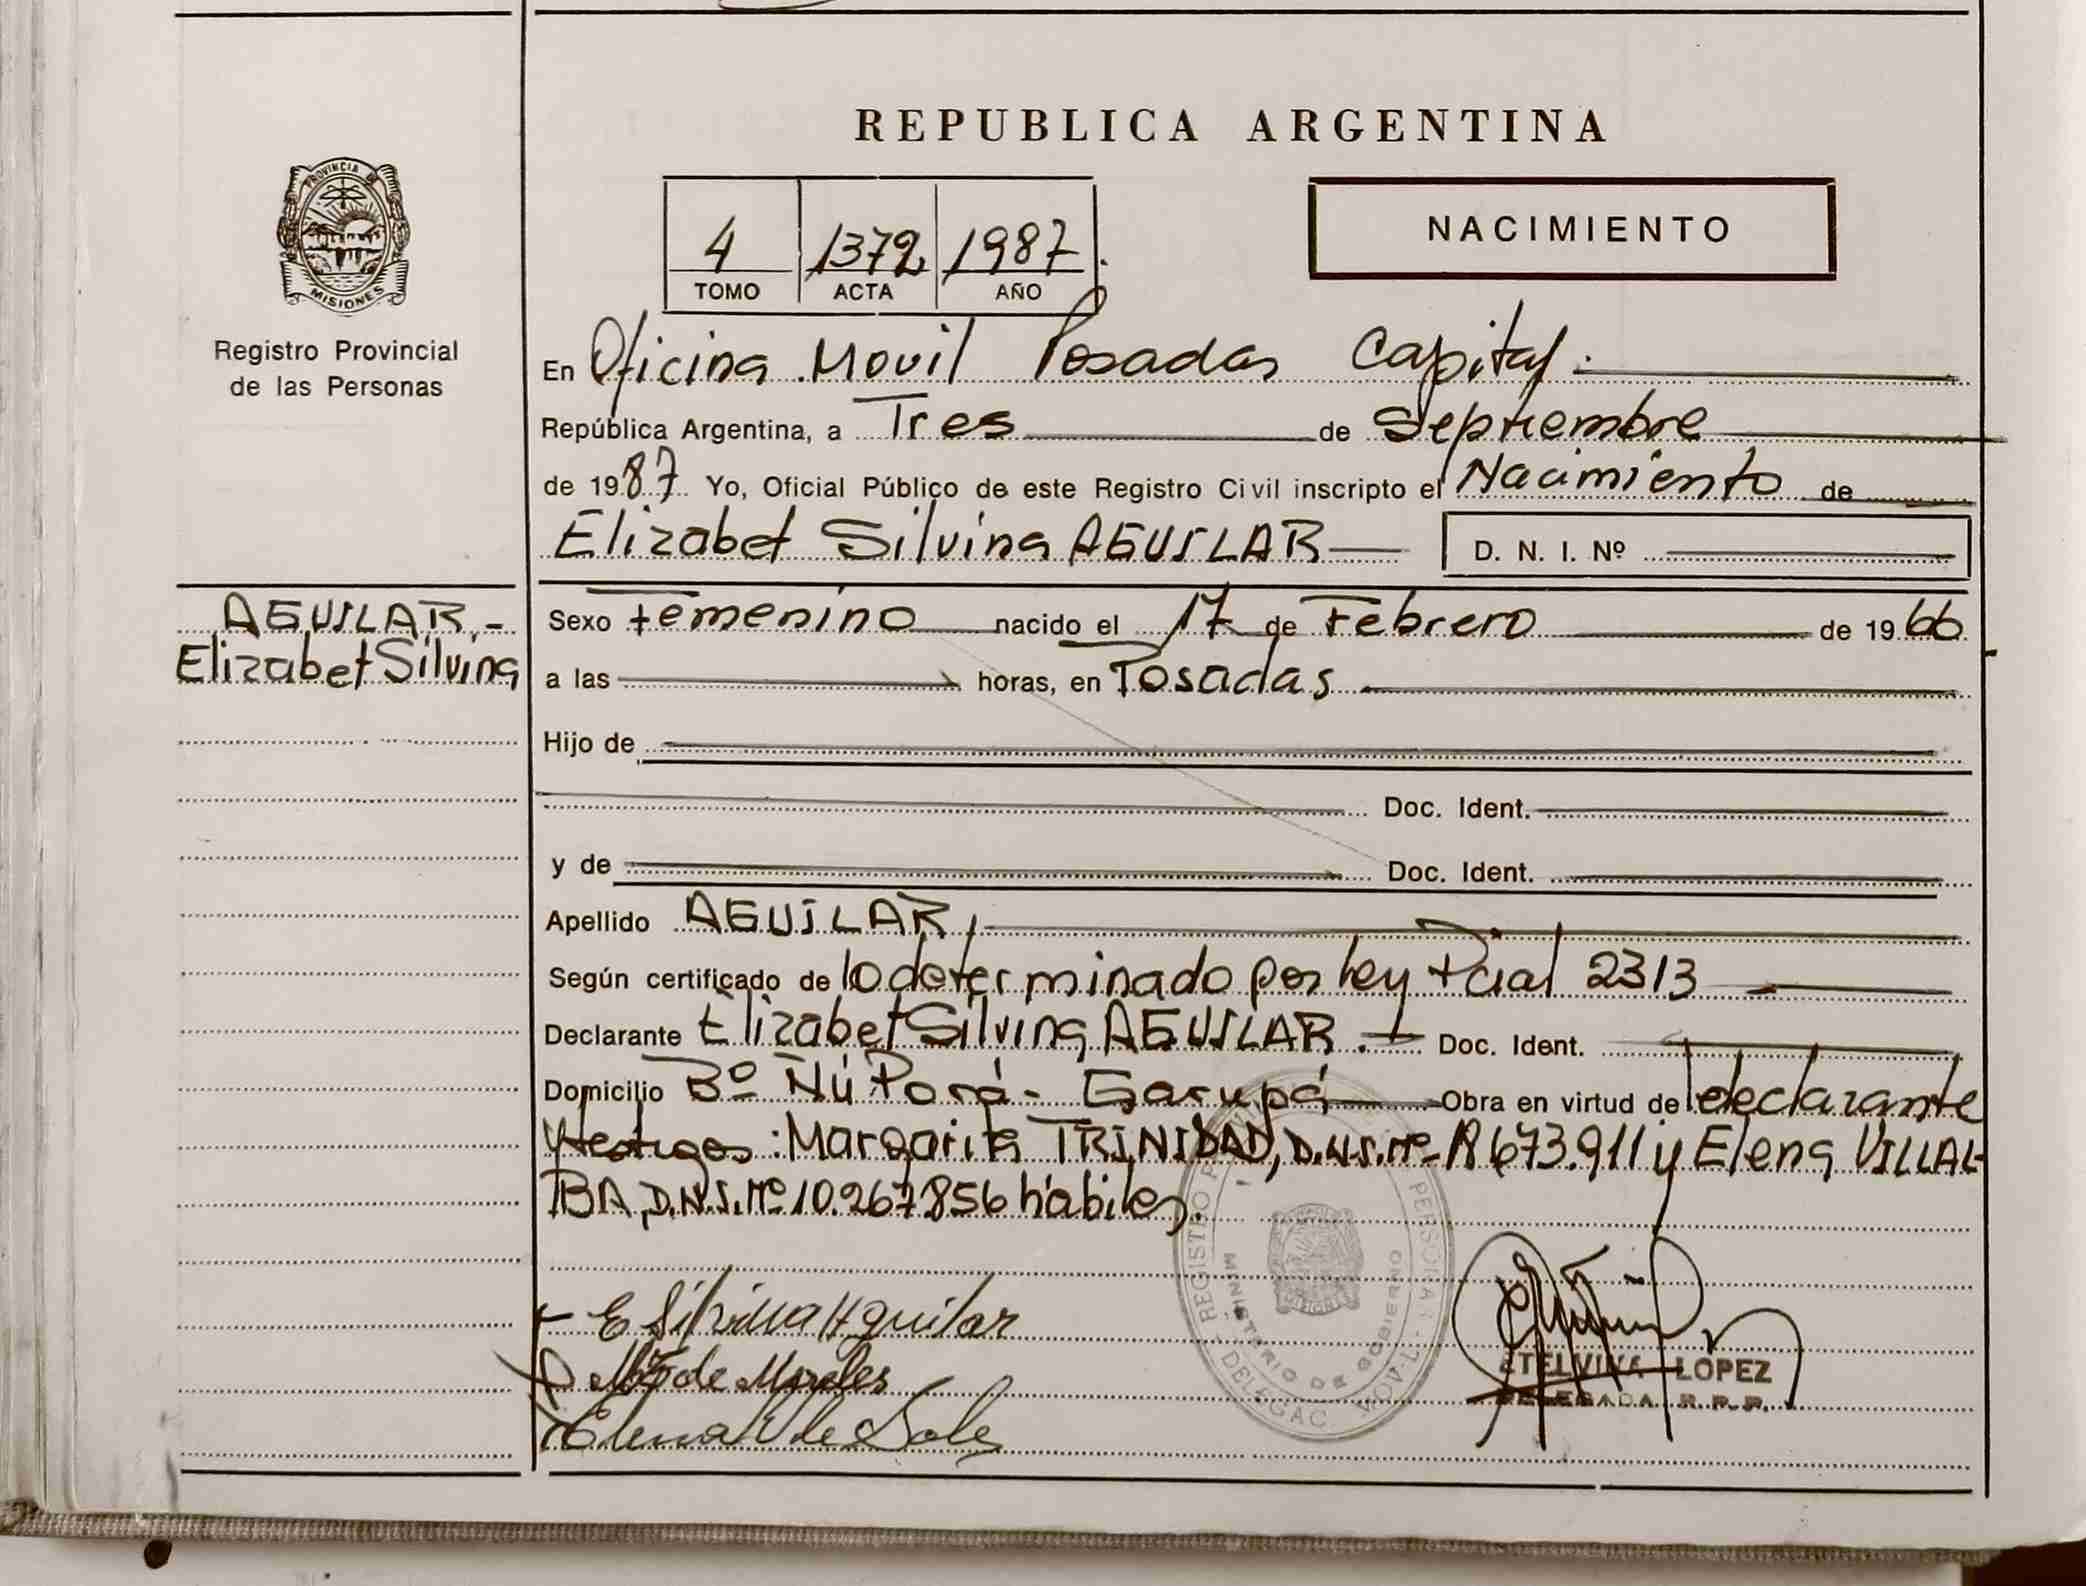 REPUBLICA ARGENTINA
PROVINCIA DE
MISIONES
Registro Provincial
de las Personas
4 1372 1987
TOMO ACTA AÑO
NACIMIENTO
En Oficina Movil Posadas Capital.
República Argentina, a Tres de Septiembre
de 1987. Yo, Oficial Público de este Registro Civil inscripto el Nacimiento de
Elizabet Silvina AGUILAR D. N. I. Nº
AGUILAR.-
Elizabet Silvina
Sexo Femenino nacido el 17 de Febrero de 1966
a las horas, en Posadas
Hijo de
Doc. Ident.
y de Doc. Ident.
Apellido AGUILAR,
Según certificado de lo determinado por ley Pcial 2313
Declarante Elizabet Silvina AGUILAR. Doc. Ident.
Domicilio Bº Ñú Porá - Garupá Obra en virtud de declarante
y testigos: Margarita TRINIDAD, D.N.I.Nº 673.911 y Elena VILLAL-
BA, D.N.I.Nº 10.267.856 hábiles.
E Silvina Aguilar
de Morales
Elena V de Sole
REGISTRO PERSONAS
MINISTERIO DE GOBIERNO
DELEGAC. MOVIL
ETELVINA LOPEZ
DELEGADA R.P.P.